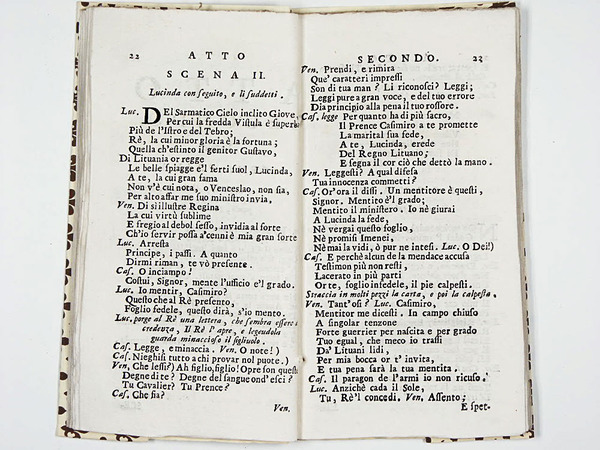 22 ATTO
SCENA II.
Lucinda con seguito, e li suddetti.
Luc. DEl Sarmatico Cielo inclito Giove,
Per cui la fredda Vistula è superba
Più de l'Istro e del Tebro;
Rè, la cui minor gloria è la fortuna;
Quella ch'estinto il genitor Gustavo,
Di Lituania or regge
Le belle spiagge e'l ferti suol, Lucinda,
A te, la cui gran fama
Non v'è cui nota, o Venceslao, non sia,
Per alto affar me suo ministro invia.
Ven. Di sì illustre Regina
La cui virtù sublime
E fregio al debol sesso, invidia al forte
Ch'io servir possa a'cenni è mia gran sorte
Luc. Arresta
Principe, i passi. A quanto
Dirmi riman, te vò presente.
Cas. O inciampo!
Costui, Signor, mente l'ufficio e'l grado.
Luc. Io mentir, Casimiro?
Questo che al Rè presento,
Foglio fedele, questo dirà, s'io mento.
Luc. porge al Rè una lettera, che sembra essere
credenza, Il Rè l'apre, e legendola
guarda minaccioso il figliuolo.
Cas. Legge, e minaccia. Ven. O note!)
Cas. Nieghisi tutto a chi provar nol puote.)
Ven. Che lessi?) Ah figlio, figlio! Opre son queste
Degne di te? Degne del sangue ond'esci?
Tu Cavalier? Tu Prence?
Cas. Che fia?
Ven.
SECONDO. 23
Ven. Prendi, e rimira
Que' caratteri impressi
Son di tua man? Li riconosci? Leggi;
Leggi pure a gran voce, e del tuo errore
Dia principio alla pena il tuo rossore.
Cas. legge Per quanto ha di più sacro,
Il Prence Casimiro a te promette
La marital sua fede,
A te, Lucinda, erede
Del Regno Lituano;
E segna il cor ciò che dettò la mano.
Ven. Leggesti? A qual difesa
Tua innocenza commetti?
Cas. Or'ora il dissi. Un mentitore è questi,
Signor. Mentito è'l grado;
Mentito il ministero. Io nè giurai
A Lucinda la fede,
Nè vergai questo foglio,
Nè promisi Imenei,
Nè mai la vidi, ò pur ne intesi. Luc. O Dei!)
Cas. E perchè alcun de la mendace accusa
Testimon più non resti,
Lacerato in più parti
Or te, foglio infedele, il piè calpesti.
Straccia in molti pezzi la carta, e poi la calpesta.
Ven. Tant'osi? Luc. Casimiro,
Mentitor me dicesti. In campo chiuso
A singolar tenzone
Forte guerrier per nascita e per grado
Tuo egual, che meco io trassi
Da' Lituani lidi,
Per mia bocca or t' invita,
E tua pena sarà la tua mentita.
Cas. Il paragon de l'armi io non ricuso.
Luc. Anzichè cada il Sole,
Tu, Rè'l concedi. Ven. Assento;
E spet-